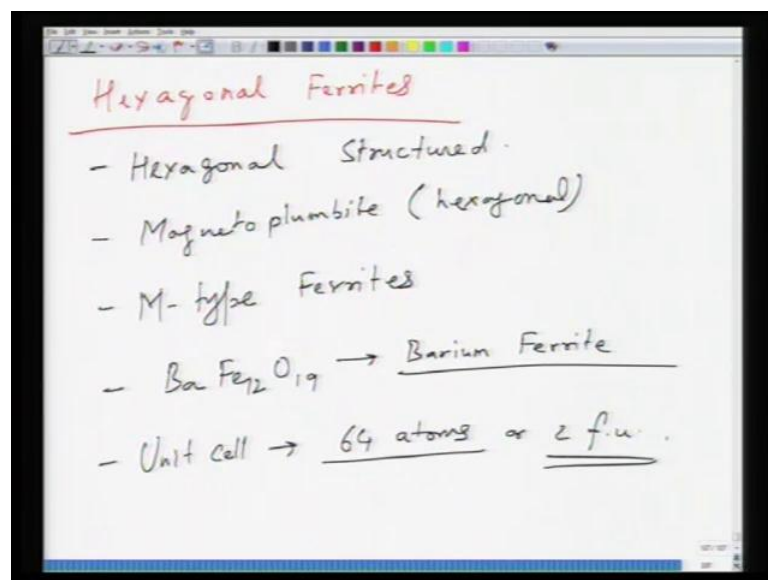 Hexagonal Ferrites
- Hexagonal Structured.
- Magnetoplumbite (hexagonal)
- M-type Ferrites
- BaFe12O19 → Barium Ferrite
- Unit Cell → 64 atoms or 2 f.u.